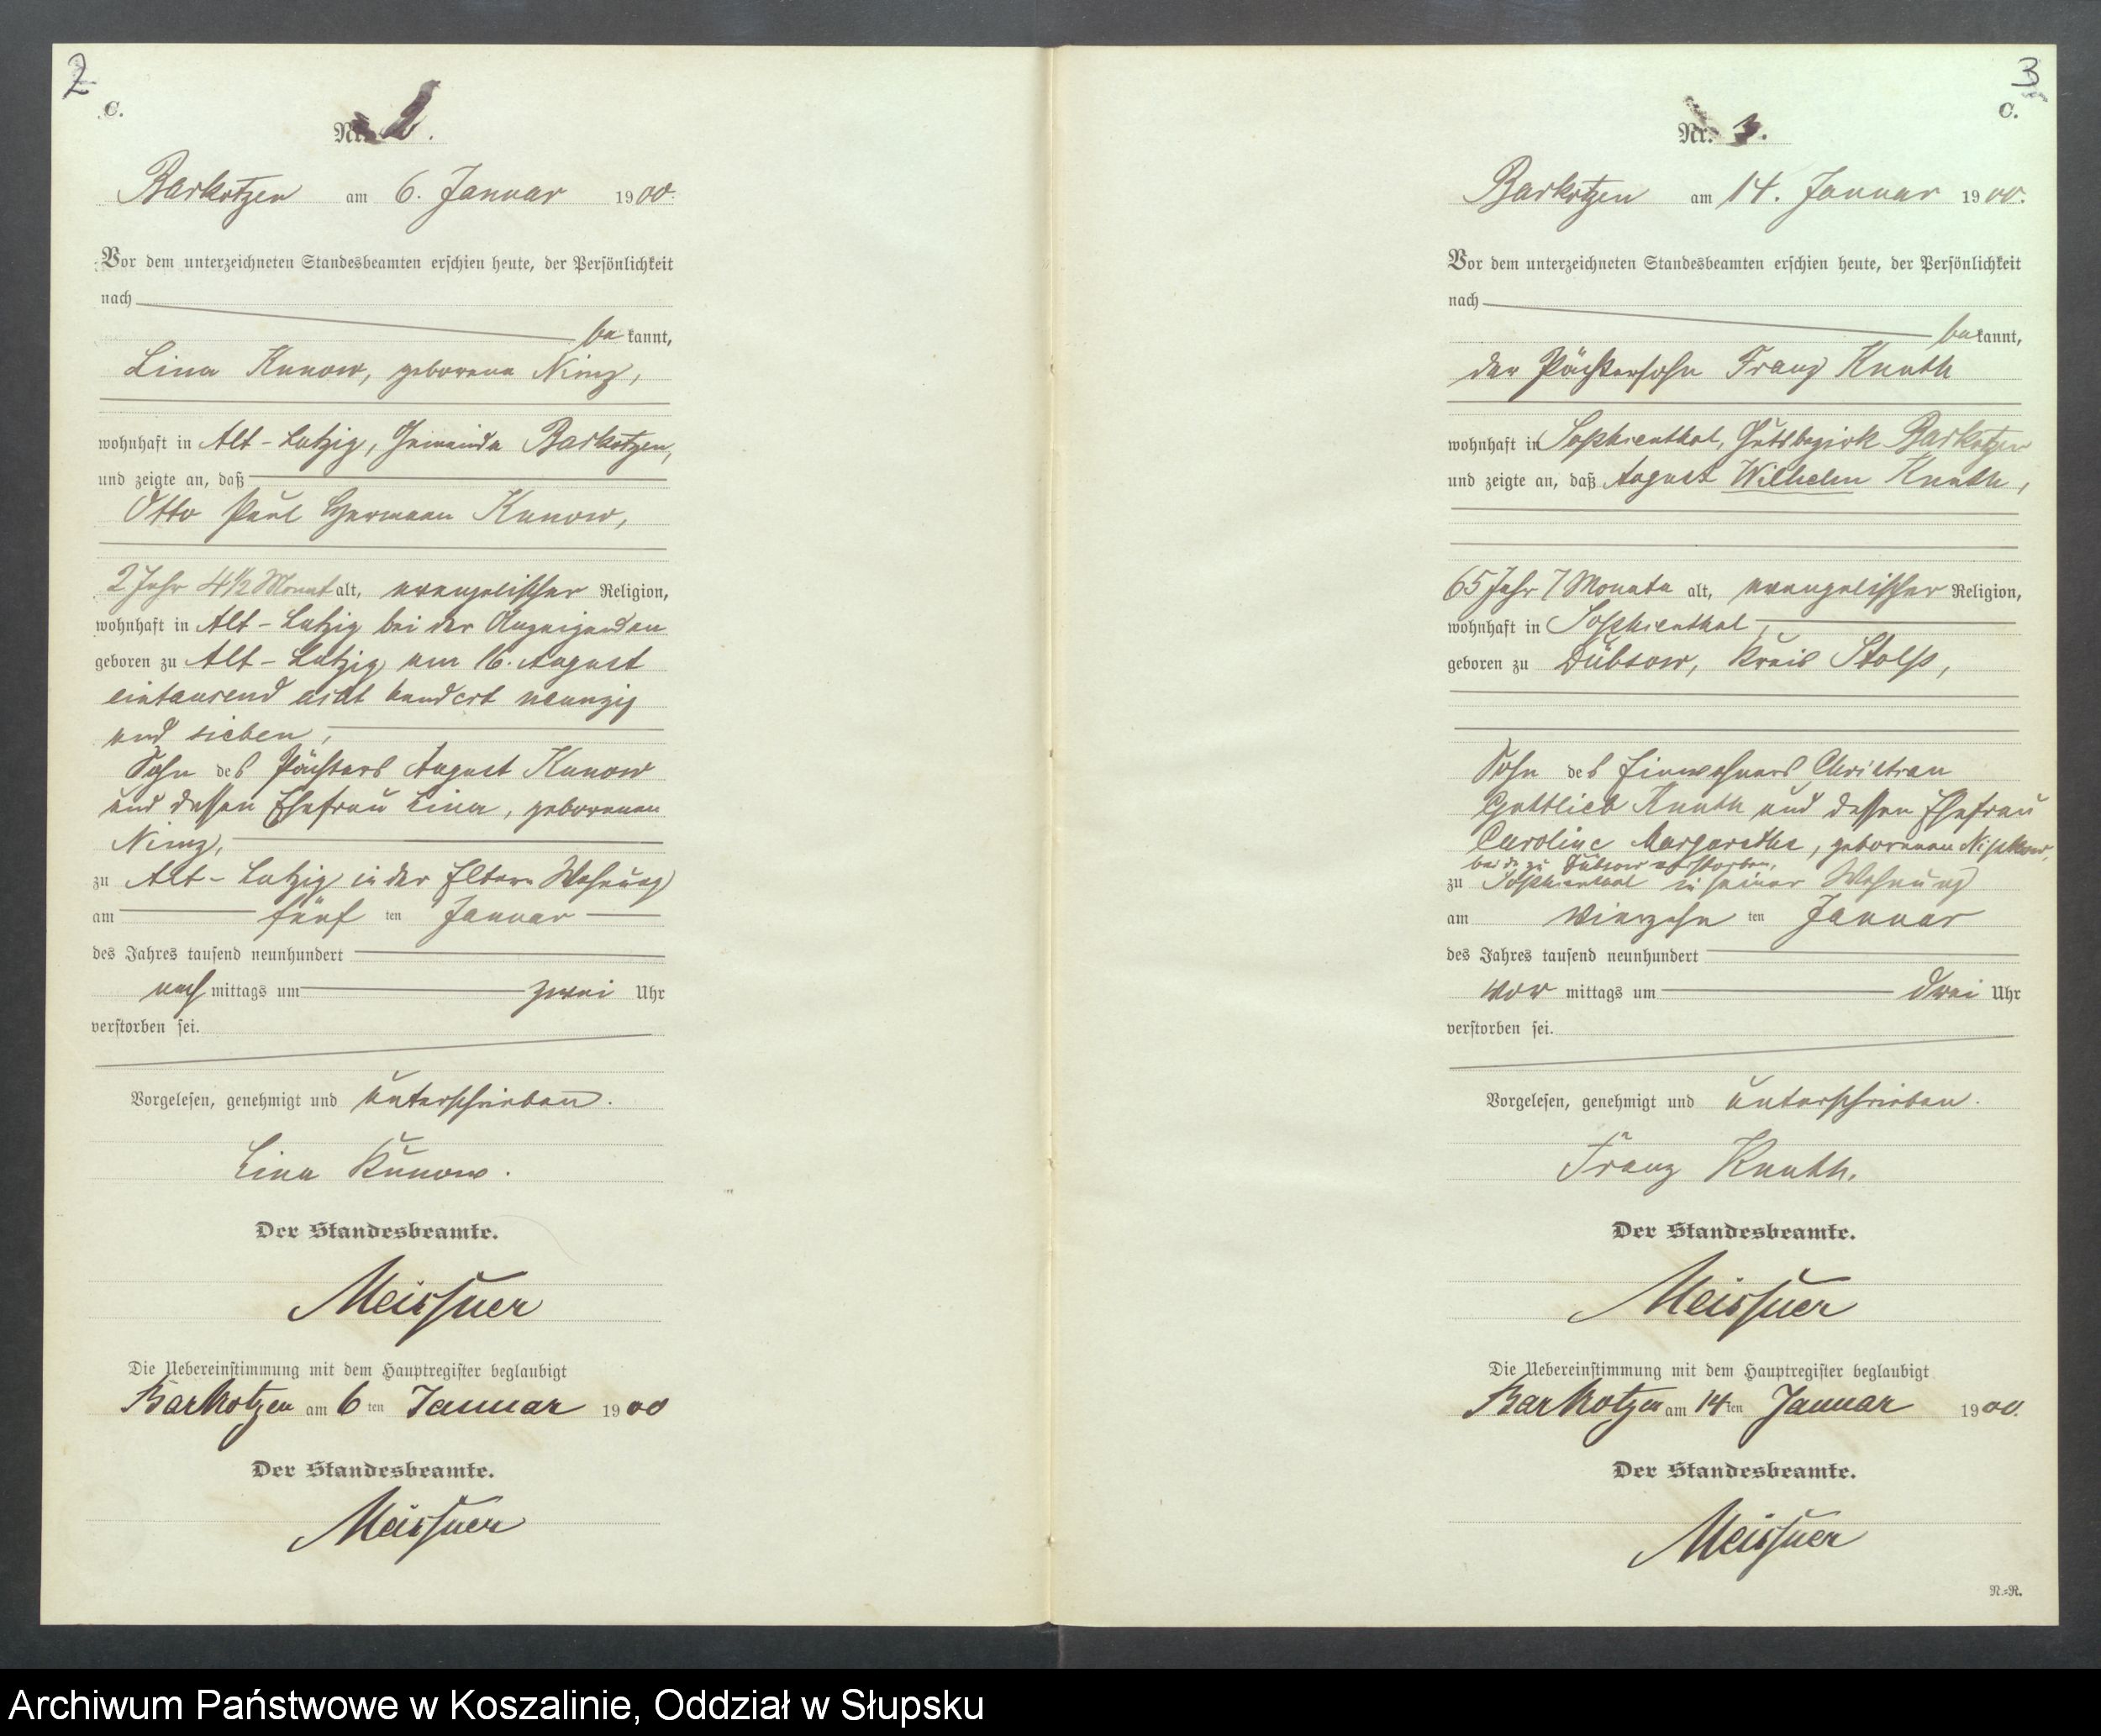 2
C.
Nr. 2.
Barkotzen am 6. Januar 1900.
Vor dem unterzeichneten Standesbeamten erschien heute, der Persönlichkeit
nach
be kannt,
Lina Kunow, geborene Nimz,
wohnhaft in Alt-Lutzig, Gemeinde Barkotzen,
und zeigte an, daß
Otto Paul Hermann Kunow,
2 Jahr 4 1/2 Monat alt, evangelischer Religion,
wohnhaft in Alt-Lutzig bei der Anzeigenden
geboren zu Alt-Lutzig am 16. August
eintausend acht hundert neunzig
und sieben,
Sohn des Pächters August Kunow
und dessen Ehefrau Lina, geborenen
Nimz,
zu Alt-Lutzig in der Eltern Wohnung
am fünf ten Januar
des Jahres tausend neunhundert
nach mittags um zwei Uhr
verstorben sei.
Vorgelesen, genehmigt und unterschrieben.
Lina Kunow.
Der Standesbeamte.
Meissner
Die Uebereinstimmung mit dem Hauptregister beglaubigt
Barkotzen am 6 ten Januar 1900
Der Standesbeamte.
Meissner
3
C.
Nr. 3.
Barkotzen am 14. Januar 1900.
Vor dem unterzeichneten Standesbeamten erschien heute, der Persönlichkeit
nach
be kannt,
der Pächtersohn Franz Knuth
wohnhaft in Sophienthal, Gutsbezirk Barkotzen
und zeigte an, daß August Wilhelm Knuth,
65 Jahr 7 Monate alt, evangelischer Religion,
wohnhaft in Sophienthal,
geboren zu Dübsow, Kreis Stolp,
Sohn des Einwohners Christian
Gottlieb Knuth und dessen Ehefrau
Caroline Margarethe, geborenen Nipkow,
beide zu Dübsow verstorben,
zu Sophienthal in seiner Wohnung
am vierzehn ten Januar
des Jahres tausend neunhundert
vor mittags um drei Uhr
verstorben sei.
Vorgelesen, genehmigt und unterschrieben.
Franz Knuth.
Der Standesbeamte.
Meissner
Die Uebereinstimmung mit dem Hauptregister beglaubigt
Barkotzen am 14 ten Januar 1900.
Der Standesbeamte.
Meissner
N.=R.
Archiwum Państwowe w Koszalinie, Oddział w Słupsku